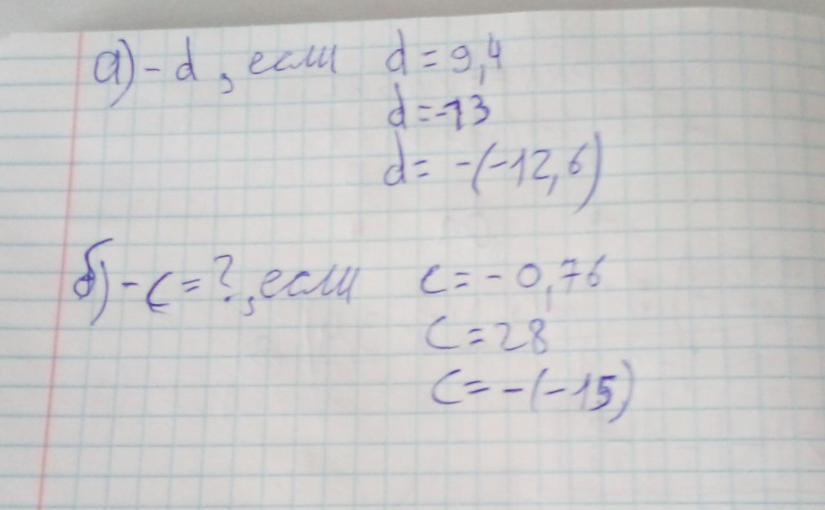 а) - d, если d = 9,4
d = -13
d = -(-12,6)
б) - c = ?, если c = - 0,76
c = 28
c = -(-15)